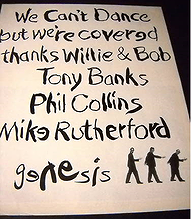 We Can't Dance
but we're covered
thanks Willie & Bob
Tony Banks
Phil Collins
Mike Rutherford
genesis